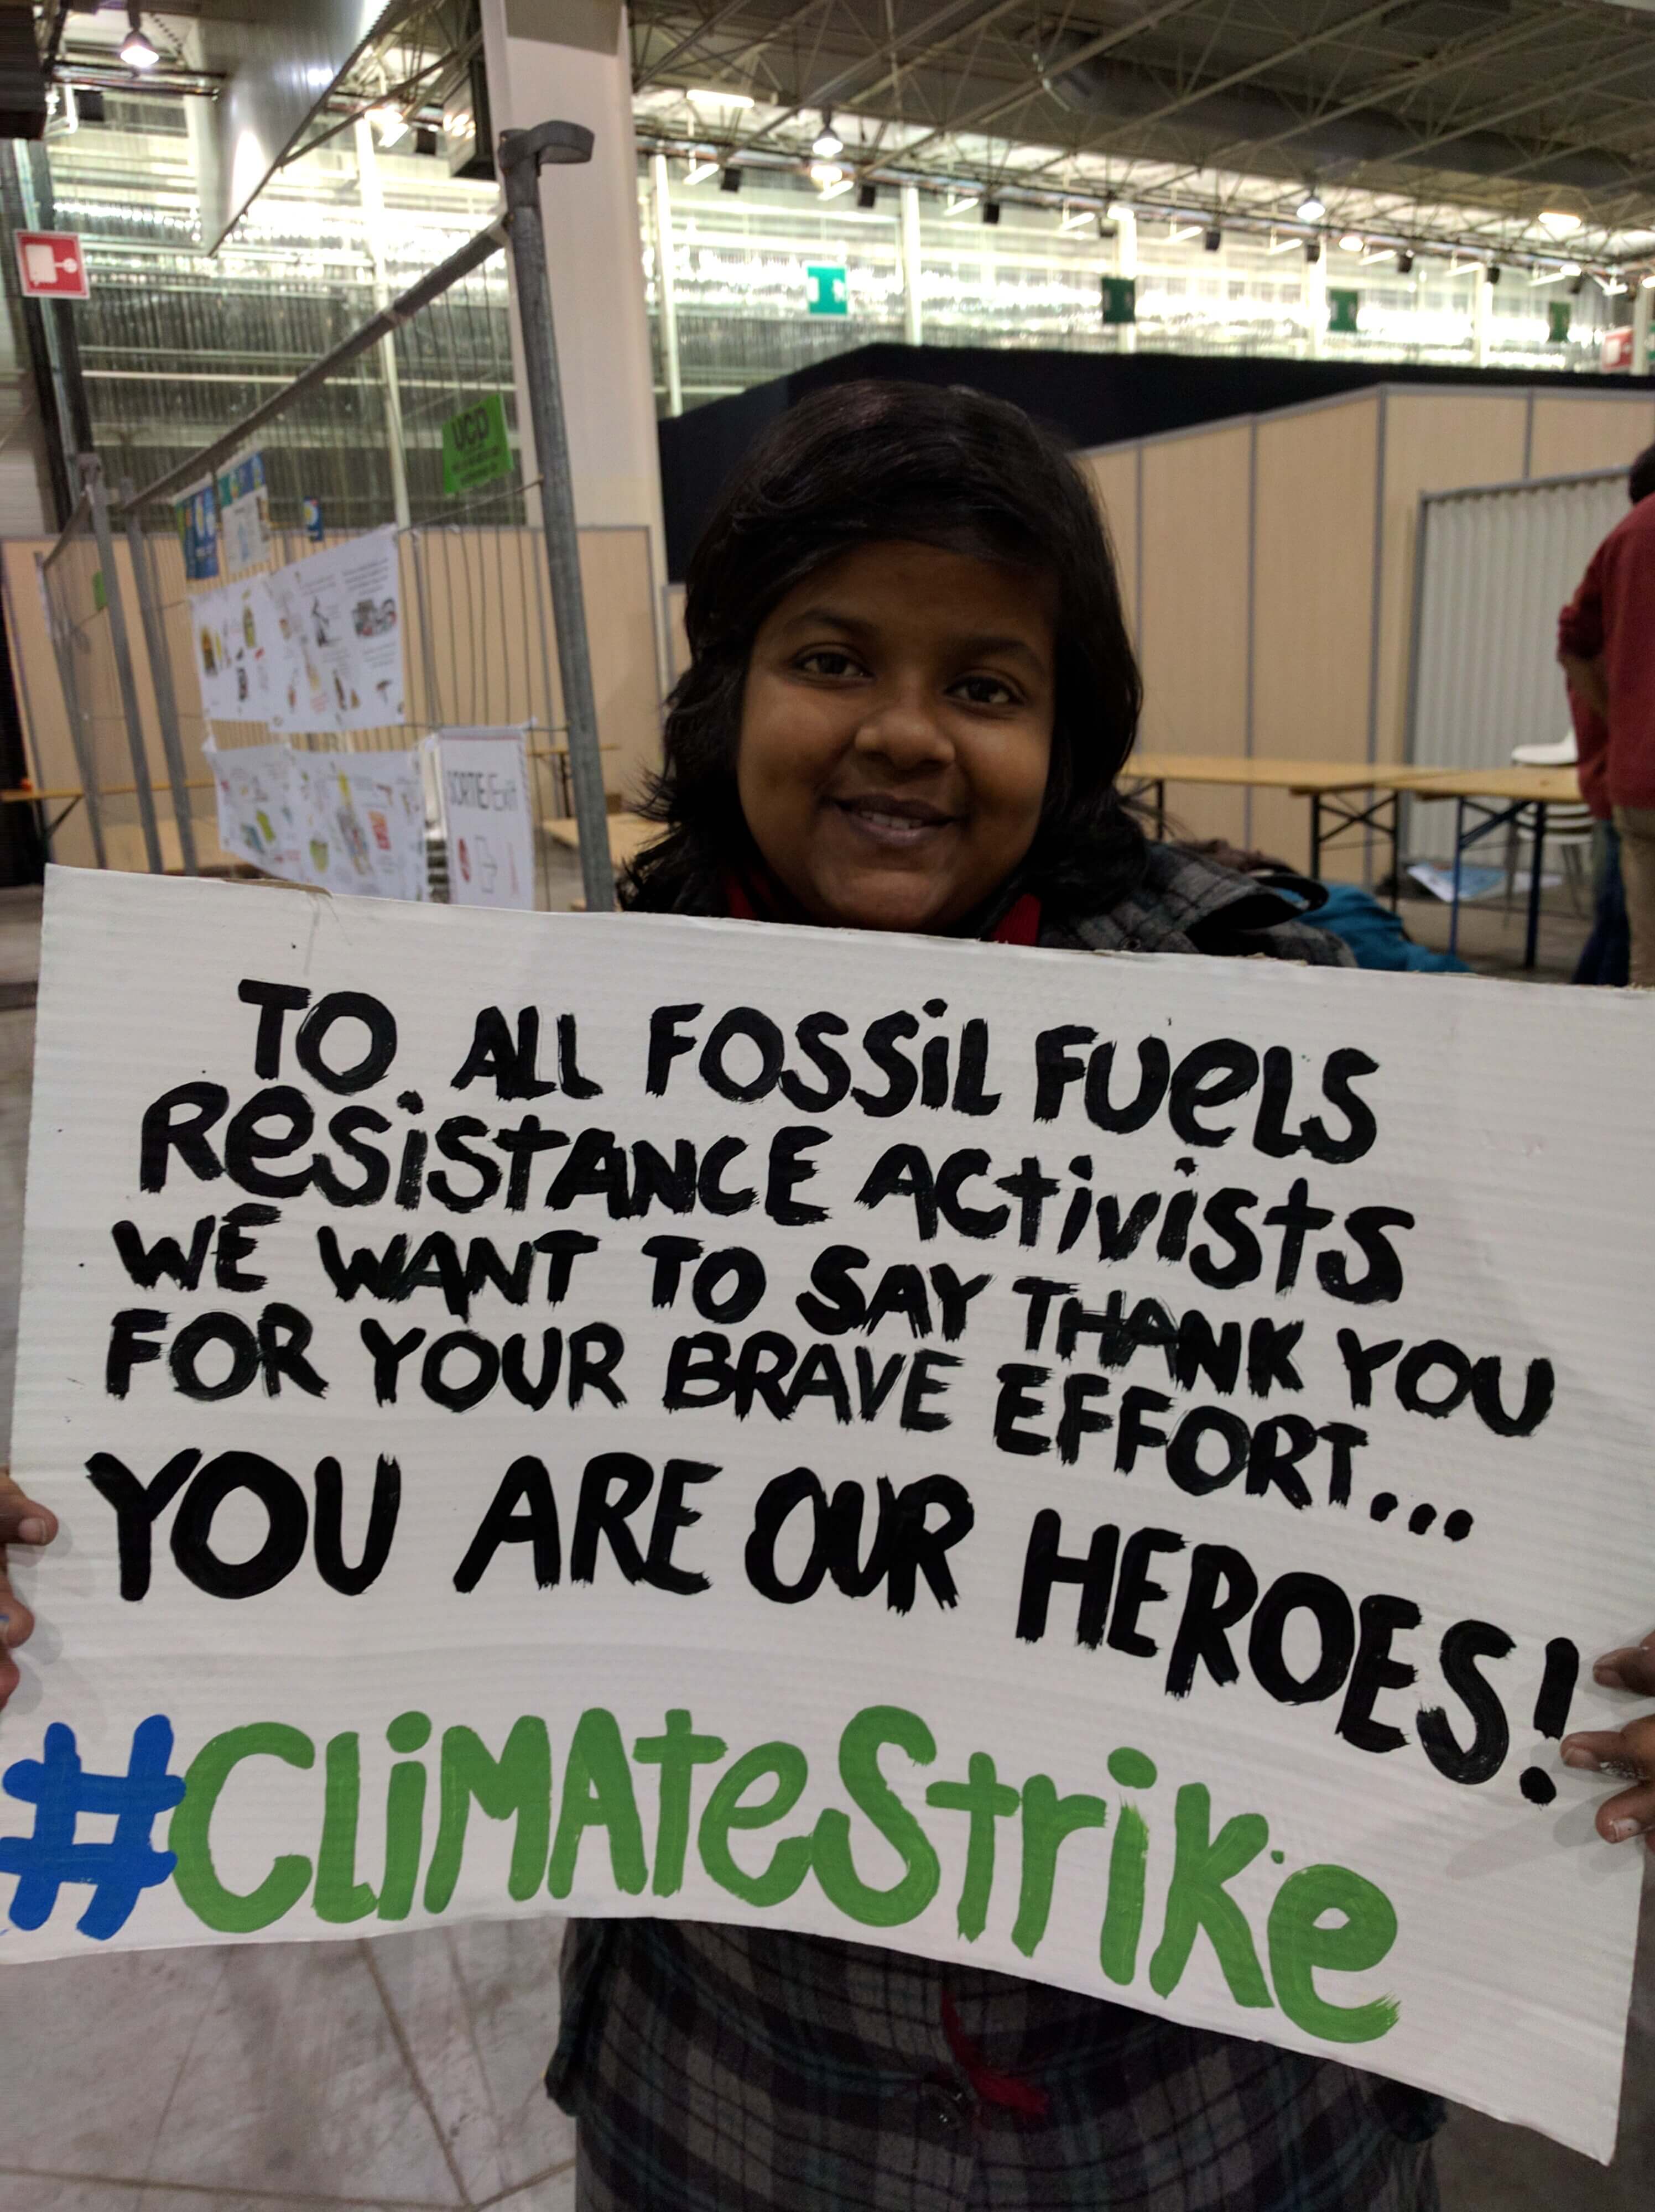 UCD
SORTIE/Exit
TO ALL FOSSiL FUeLS
ReSiStANCE ACtivistS
WE WANT TO SAY THANK YOU
FOR YOUR BRAVE EFFORT...
YOU ARE OUR HEROES!
#CLiMAteStriKe